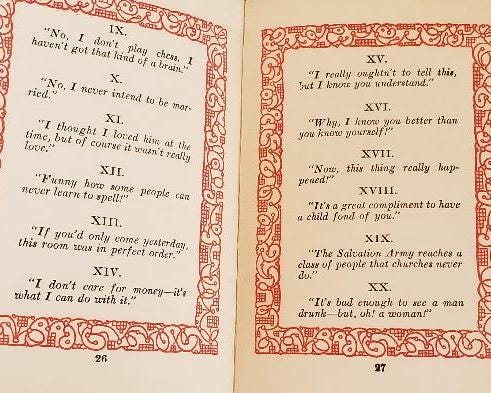 IX.
"No, I don't play chess. I
haven't got that kind of a brain."
X.
"No, I never intend to be mar-
ried."
XI.
"I thought I loved him at the
time, but of course it wasn't really
love."
XII.
"Funny how some people can
never learn to spell!"
XIII.
"If you'd only come yesterday,
this room was in perfect order."
XIV.
"I don't care for money—it's
what I can do with it."
26
XV.
"I really oughtn't to tell this,
but I know you understand."
XVI.
"Why, I know you better than
you know yourself!"
XVII.
"Now, this thing really hap-
pened!"
XVIII.
"It's a great compliment to have
a child fond of you."
XIX.
"The Salvation Army reaches a
class of people that churches never
do."
XX.
"It's bad enough to see a man
drunk—but, oh! a woman!"
27